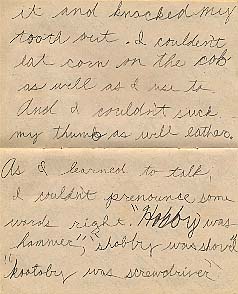 it and knocked my
tooth out. I couldent
eat corn on the cob
as well as I use to.
And I couldn't suck
my thumb as well eather.
As I learned to talk,
I couldn't prenounce some
words right. "Hobby" was
hammer", "shobby was shovel"
"kootoby was screwdriver"